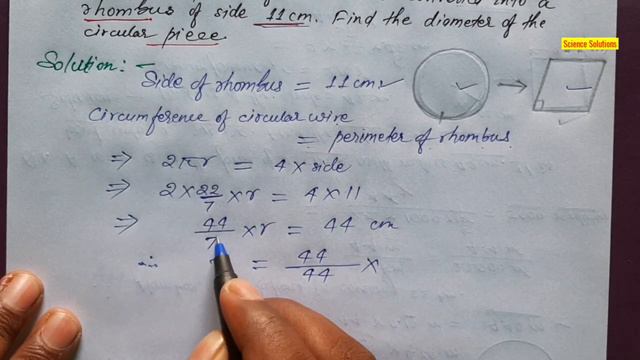 rhombus of side 11cm. Find the diameter of the
circular piece.
Science Solutions
Solution:-
Side of rhombus = 11cm
Circumference of circular wire
= perimeter of rhombus
⇒ 2πr = 4 × side
⇒ 2 × 22/7 × r = 4 × 11
⇒ 44/7 × r = 44 cm
∴ = 44/44 ×